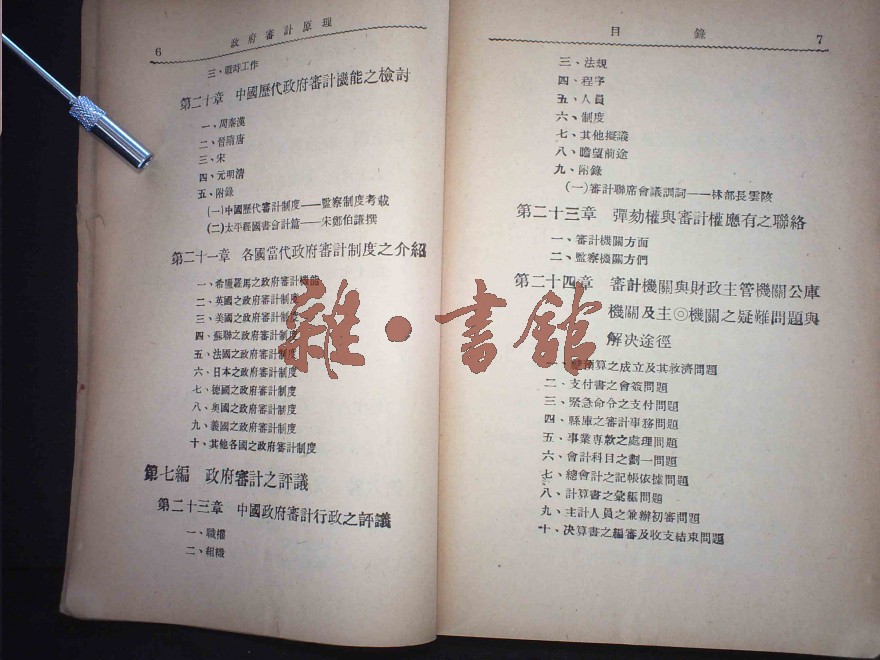 6
政府審計原理
三、戰時工作
第二十章 中國歷代政府審計機能之檢討
一、周秦漢
二、晉隋唐
三、宋
四、元明清
五、附錄
(一)中國歷代審計制度——監察制度考載
(二)太平經國書會計篇——朱鄭伯謙撰
第二十一章 各國當代政府審計制度之介紹
一、希臘羅馬之政府審計機能
二、英國之政府審計制度
三、美國之政府審計制度
四、蘇聯之政府審計制度
五、法國之政府審計制度
六、日本之政府審計制度
七、德國之政府審計制度
八、奧國之政府審計制度
九、義國之政府審計制度
十、其他各國之政府審計制度
第七編 政府審計之評議
第二十三章 中國政府審計行政之評議
一、職權
二、組織
目錄
7
三、法規
四、程序
五、人員
六、制度
七、其他擬議
八、瞻望前途
九、附錄
(一)審計聯席會議訓詞——林部長雲陔
第二十三章 彈劾權與審計權應有之聯絡
一、審計機關方面
二、監察機關方們
第二十四章 審計機關與財政主管機關公庫
機關及主◎機關之疑難問題與
解決途徑
一、預算之成立及其救濟問題
二、支付書之會簽問題
三、緊急命令之支付問題
四、縣庫之審計事務問題
五、事業專款之處理問題
六、會計科目之劃一問題
七、總會計之記帳依據問題
八、計算書之彙編問題
九、主計人員之兼辦初審問題
十、決算書之編審及收支結束問題
雜·書館